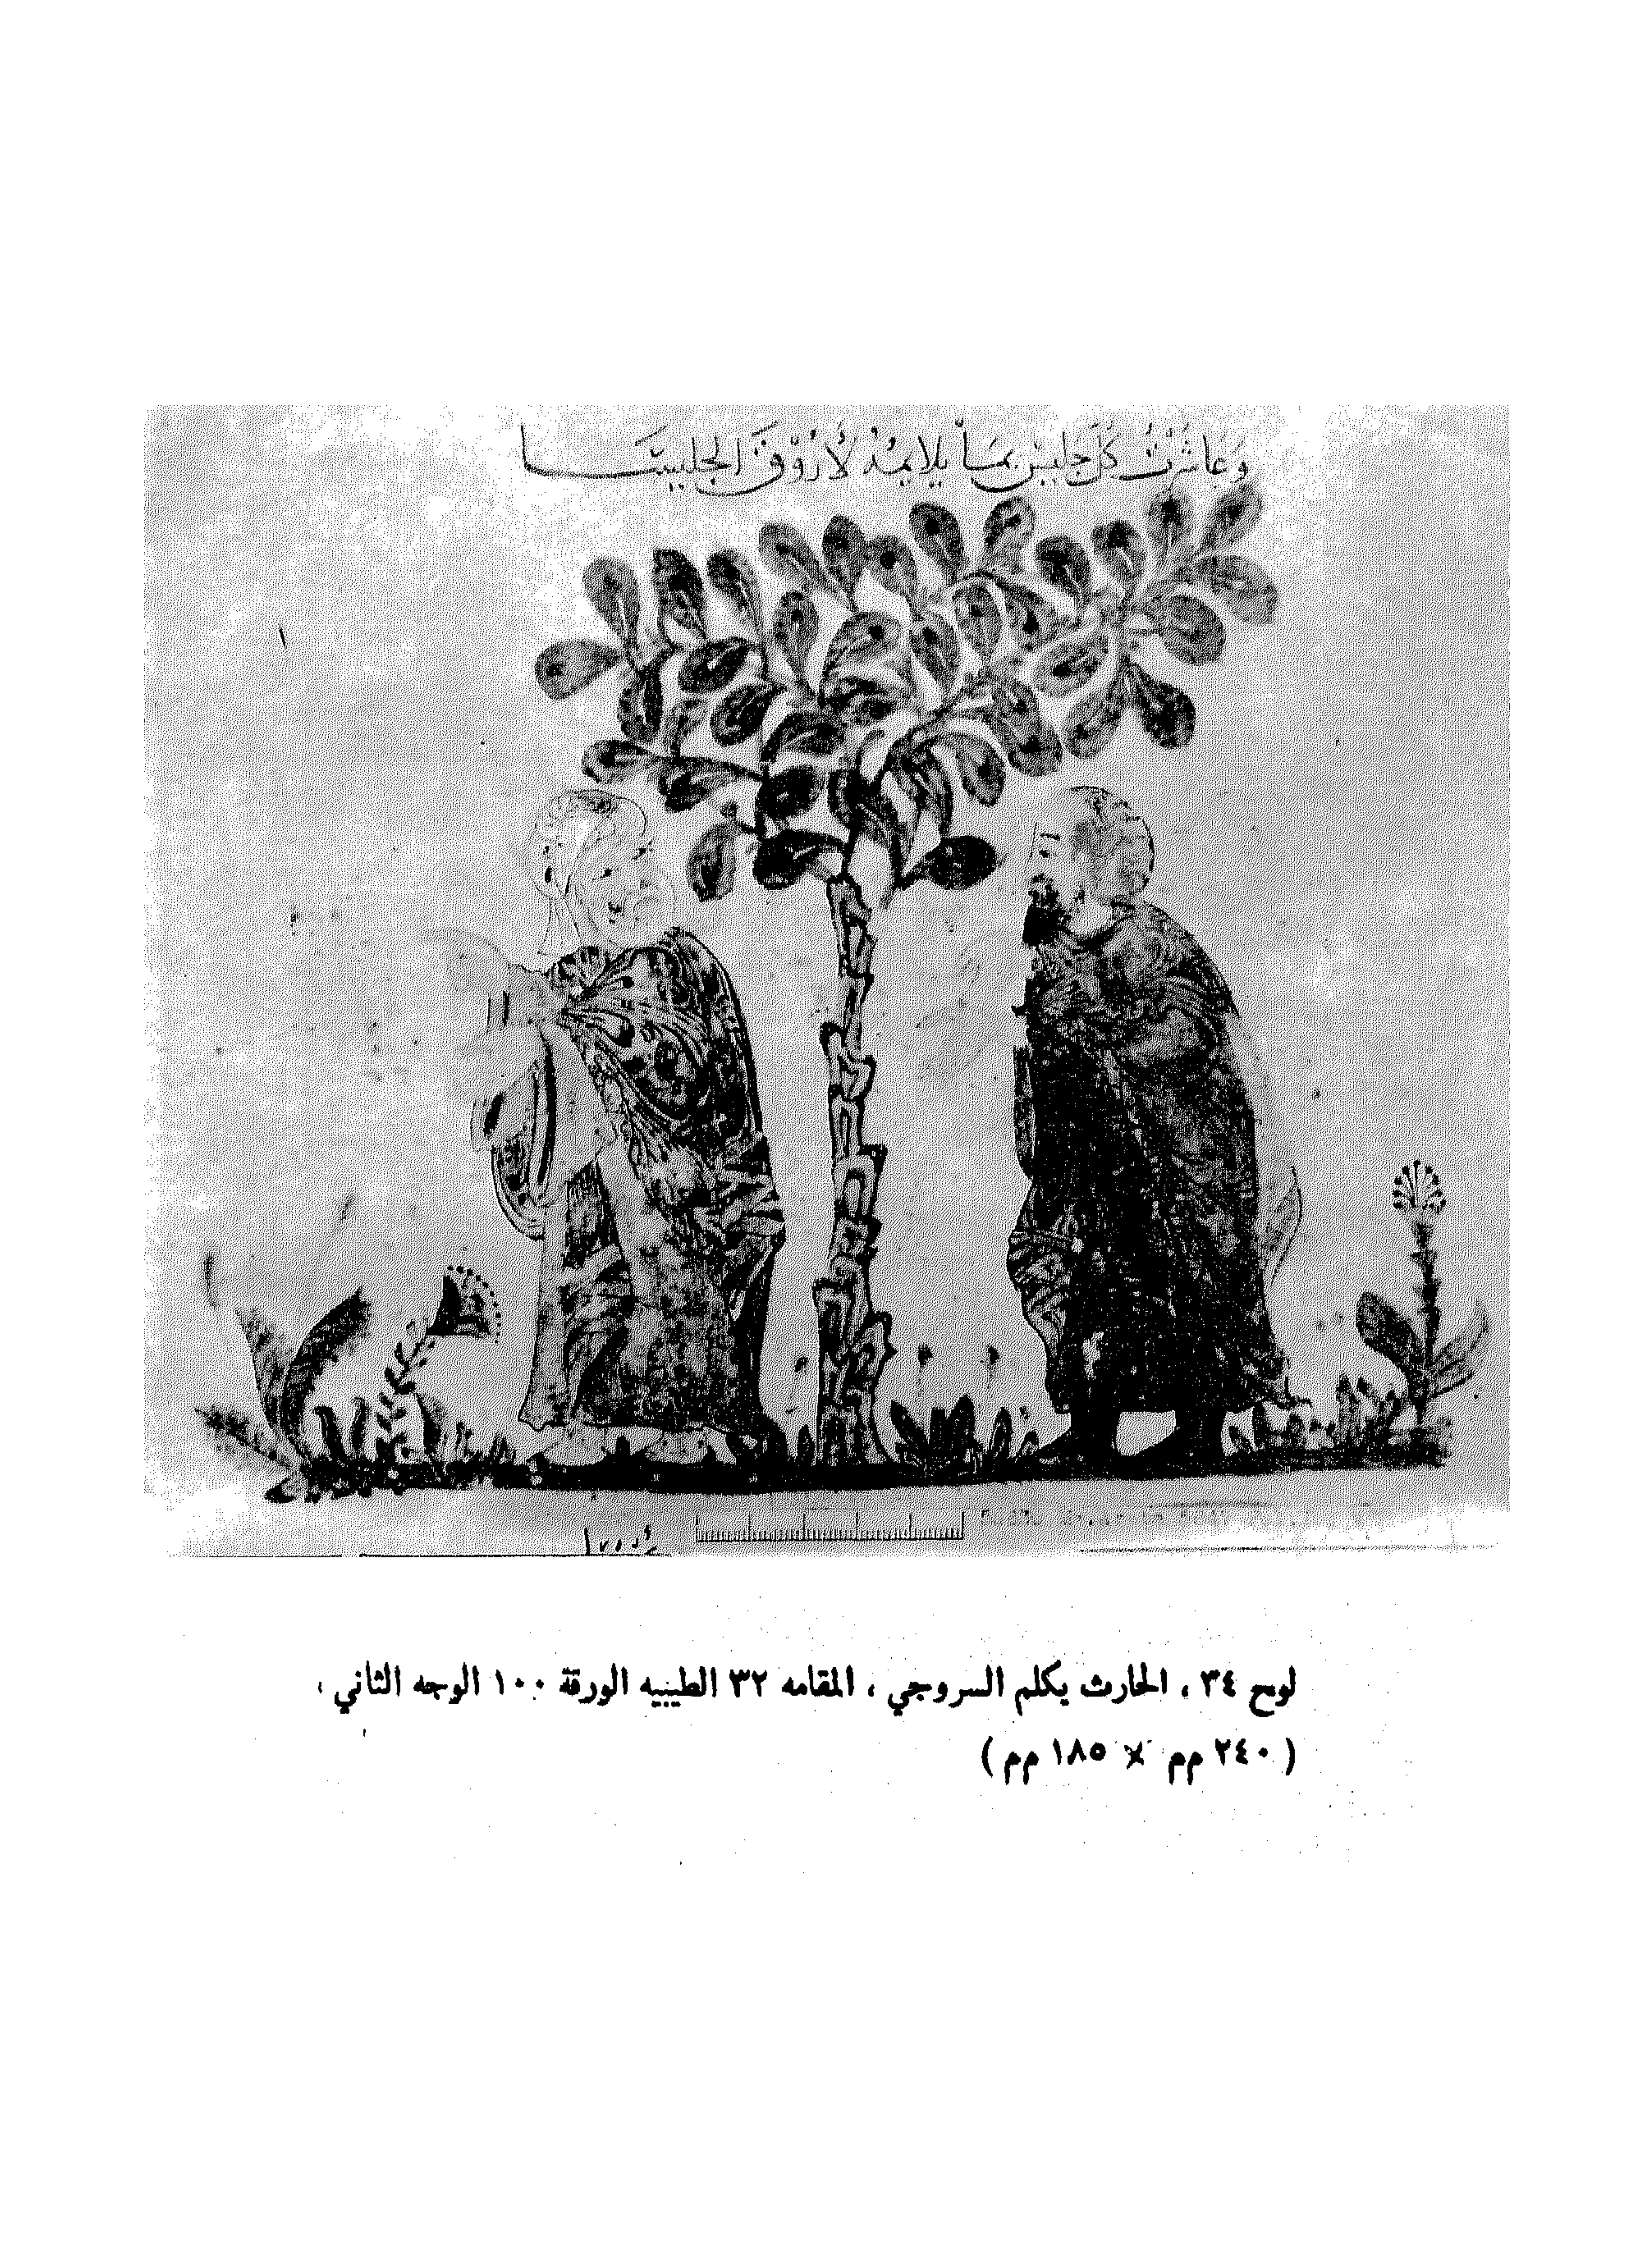 وَعَاشَرْتُ كُلَّ جَلِيسٍ بِمَا يُلَايِمُهُ لِأَرُوقَ الجَلِيسَا
لوح ٣٤ ، الحارث يكلم السروجي ، المقامه ٣٢ الطيبيه الورقة ١٠٠ الوجه الثاني ،
( ٢٤٠ مم × ١٨٥ مم )